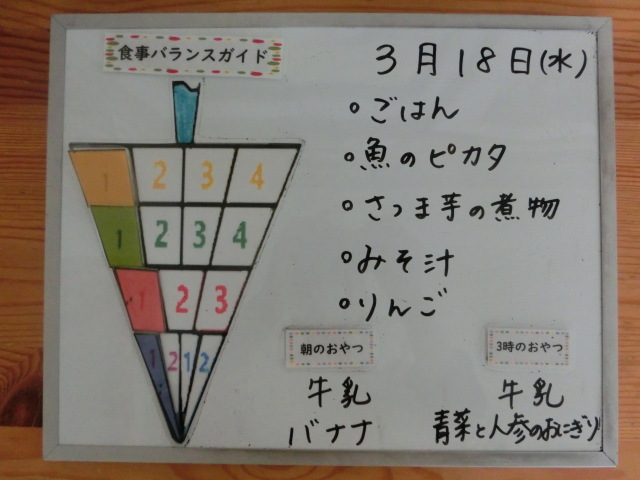 食事バランスガイド
3月18日(水)
1 2 3 4
1 2 3 4
1 2 3
1 2 1 2
ごはん
魚のピカタ
さつま芋の煮物
みそ汁
りんご
朝のおやつ
牛乳
バナナ
3時のおやつ
牛乳
青菜と人参のおにぎり